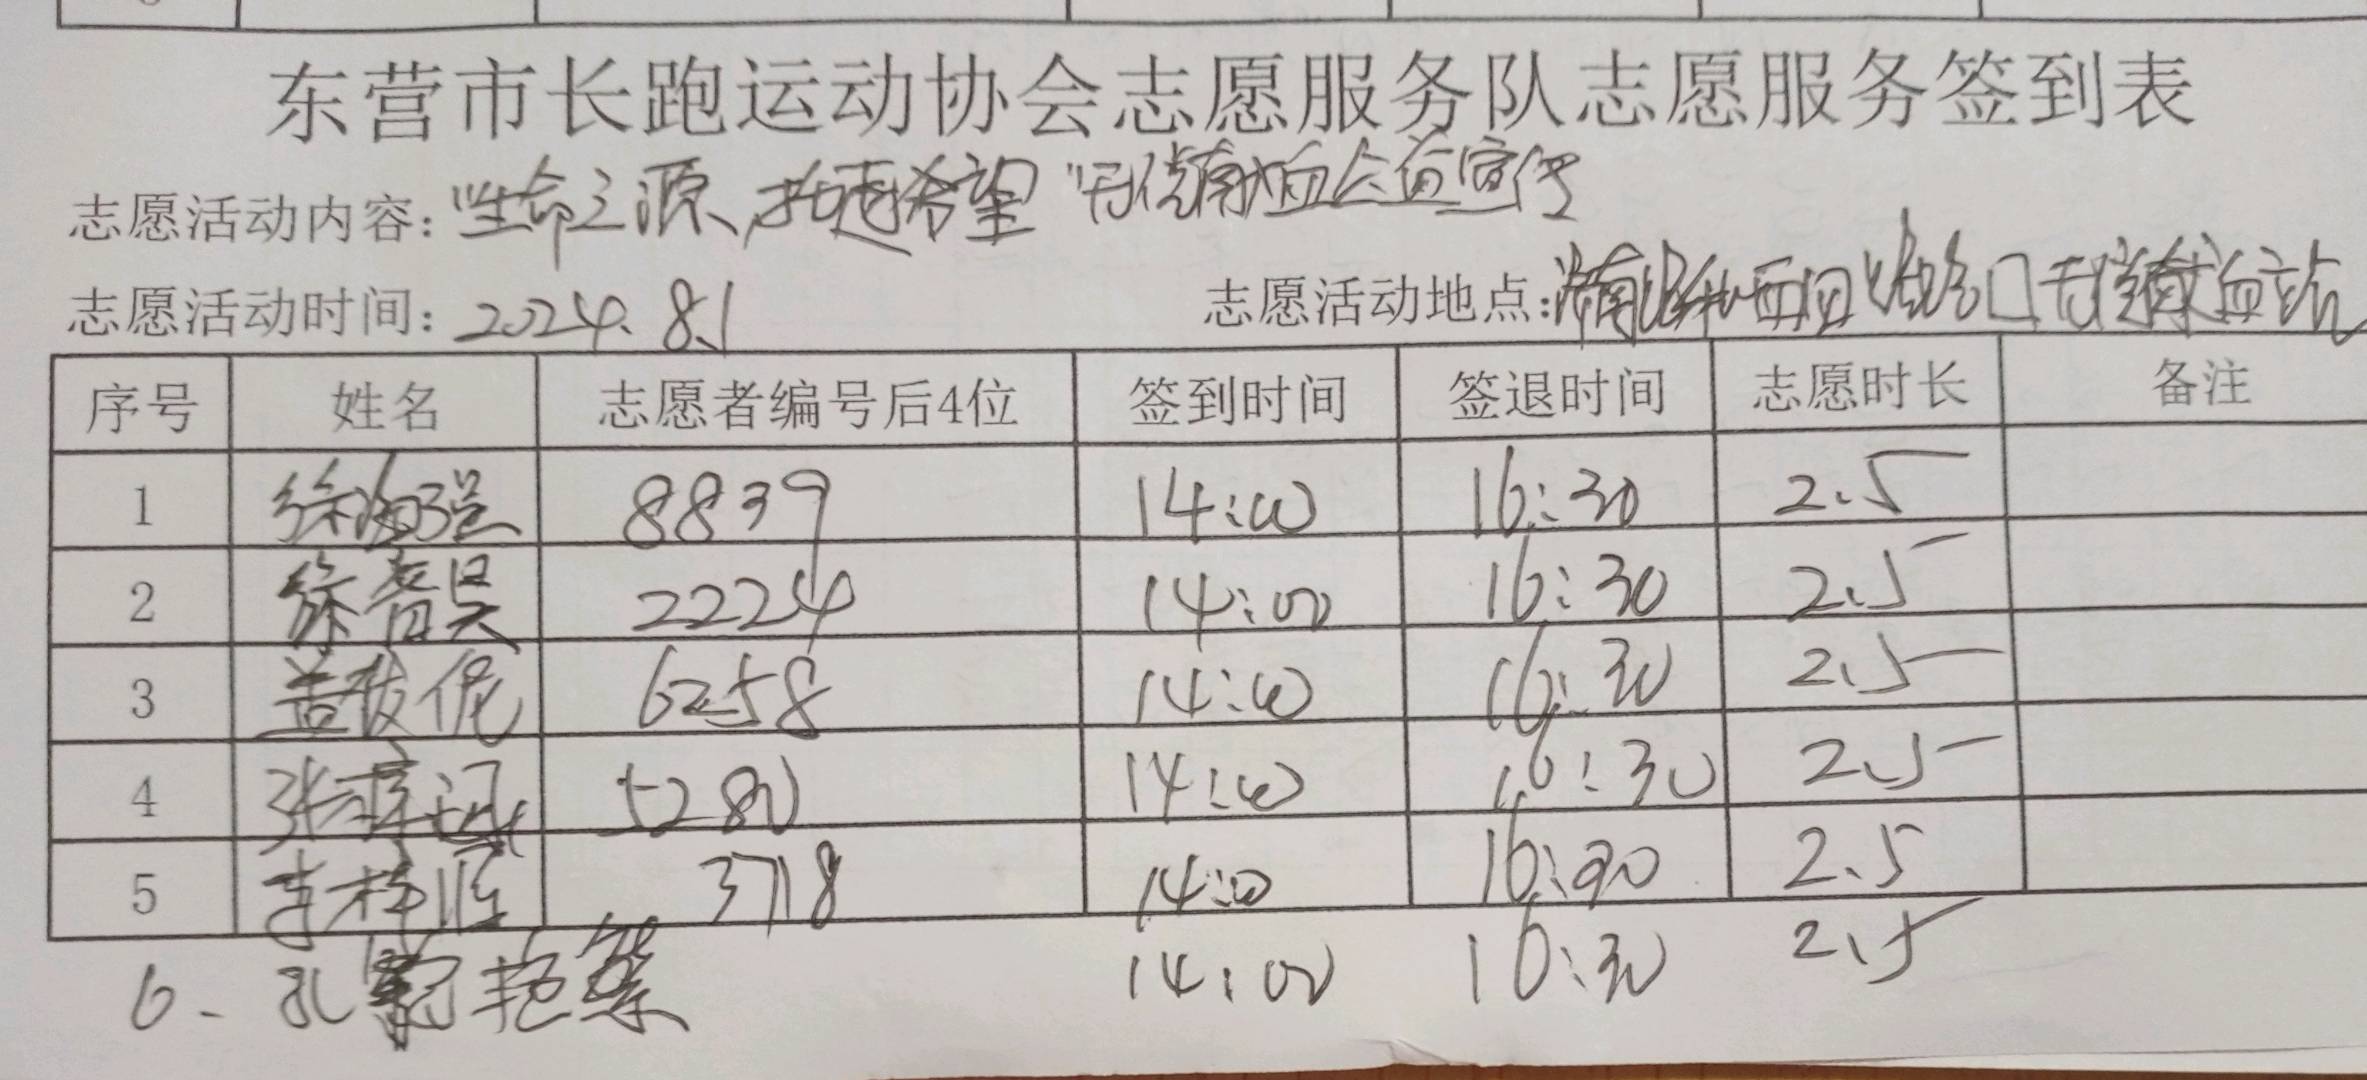 东营市长跑运动协会志愿服务队志愿服务签到表
志愿活动内容：“生命之源、托起希望”无偿献血公益宣传
志愿活动时间：2024.8.1
志愿活动地点：济南路和西四路路口无偿献血站
序号 姓名 志愿者编号后4位 签到时间 签退时间 志愿时长 备注
1 徐海强 8839 14:00 16:30 2.5
2 徐睿昊 2224 14:00 16:30 2.5
3 盖 6258 14:00 16:30 2.5
4 张 5280 14:00 16:30 2.5
5 李梓 3718 14:00 16:30 2.5
6、孔 14:00 16:30 2.5